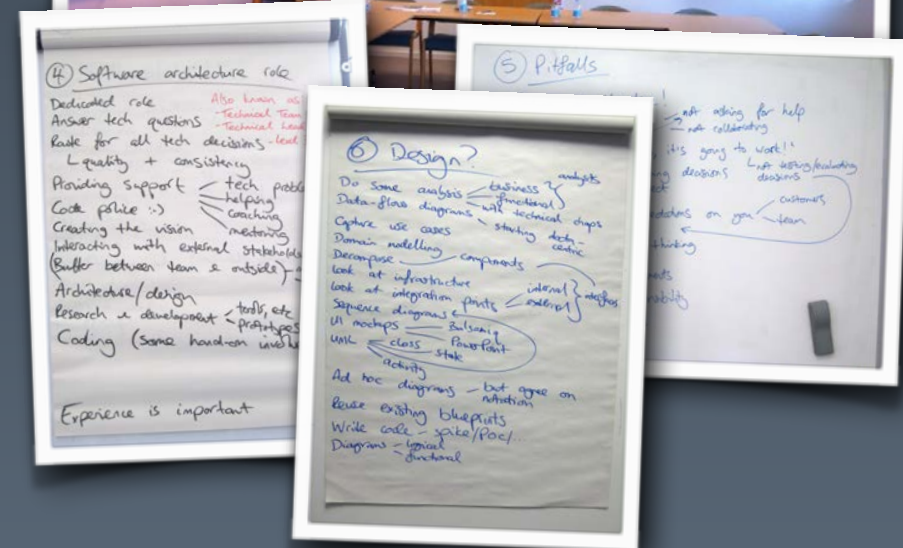 ④ Software architecture role
Dedicated role
Answer tech questions
Route for all tech decisions
quality + consistency
Providing support
tech
helping
coaching
mentoring
Code police :-)
Creating the vision
Interacting with external
(Buffer between team & outside)
Architecture/design
Research & development
tools, etc
prototypes
Coding (some hand-on
Experience is important
Also known as
-Technical
-Technical
⑥ Design?
Do some analysis
business
functional
analysts
Data-flow diagrams
with technical chaps
starting
centric
Capture use cases
Domain modelling
Decompose
components
Look at infrastructure
Look at integration points
internal
external
Sequence diagrams
UI mockups
Balsamiq
PowerPoint
UML
class
state
activity
Ad hoc diagrams - but agree on
notation
Reuse existing blueprints
Write code - spike/PoC/...
Diagrams - logical
- functional
⑤ Pitfalls
not asking for help
not collaborating
it's going to work!"
decisions
not testing/evaluating
decisions
on you
customers
team
thinking